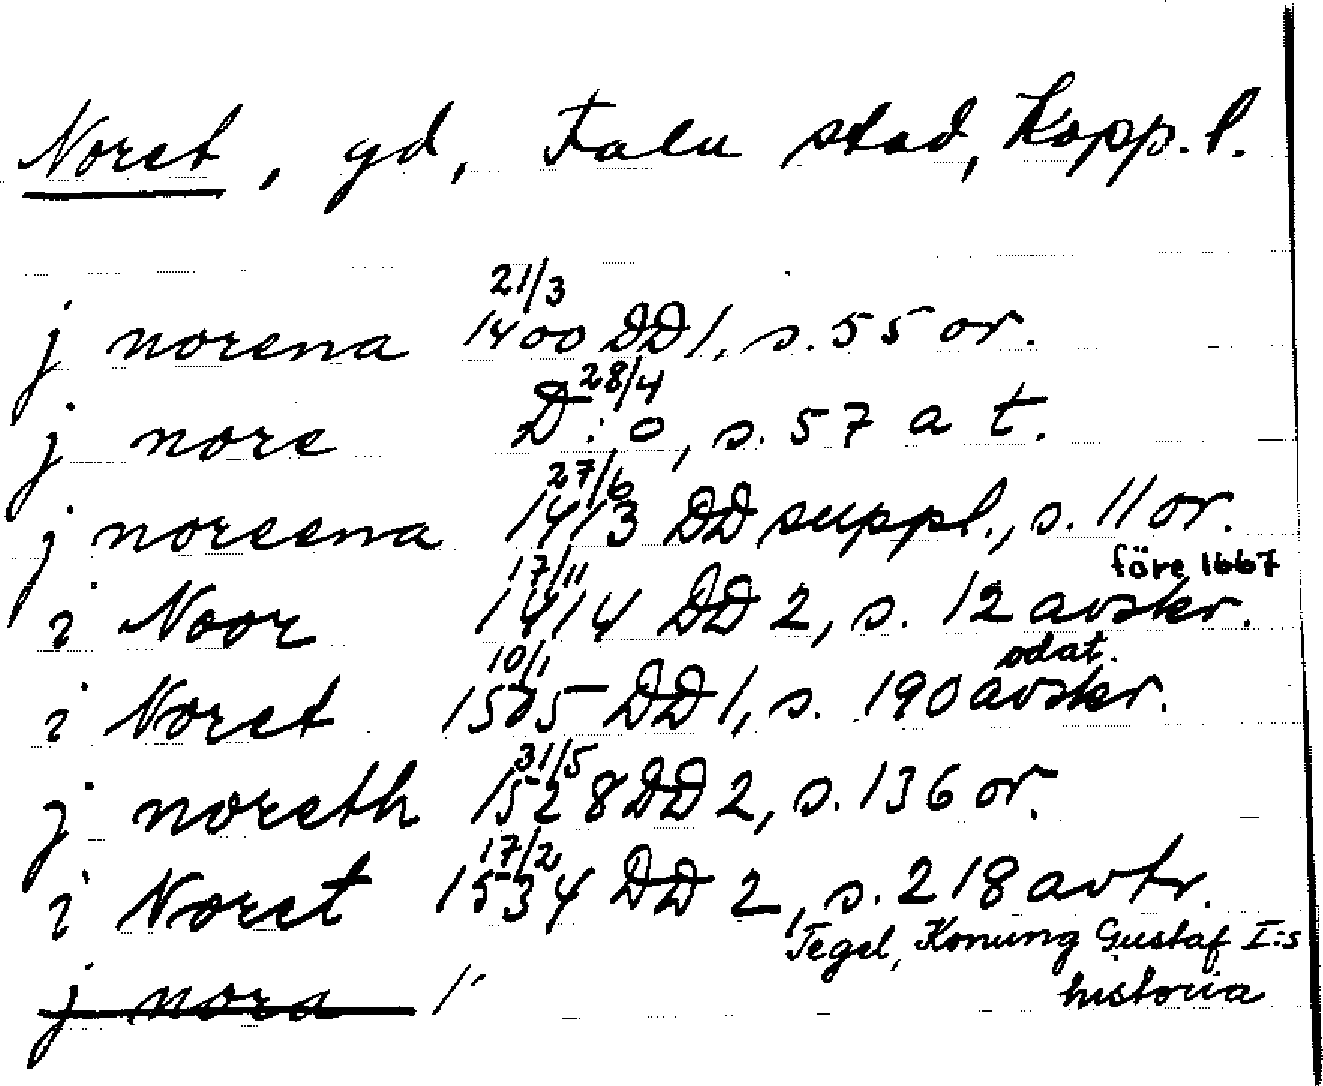 Noret, gd, Falu stad, Kopp. l.
j norena 21/3 1400 DD 1, s. 55 or.
j nore D:o 28/4, s. 57 a t.
j noreena 27/6 1413 DD suppl., s. 11 or.
i Noor 17/11 1414 DD 2, s. 12 avskr. före 1667
i Noret 10/1 1505 DD 1, s. 190 avskr. odat.
j noreth 31/5 1528 DD 2, s. 136 or.
i Noret 17/2 1534 DD 2, s. 218 avtr.
Tegel, Konung Gustaf I:s
historia
j nora 1